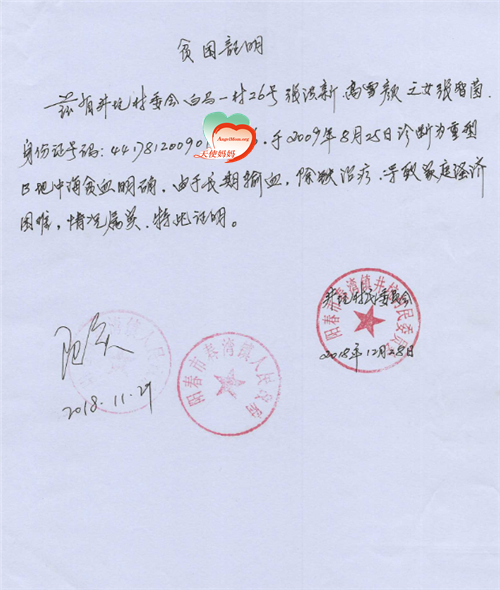 贫困証明
兹有井坑村委会白马一村26号张洪新、高雪颜之女张智茵,
身份证号码:44178120090 ,于2009年8月25日诊断为重型
B地中海贫血明确,由于长期输血,除铁治疗,导致家庭经济
困难,情况属实,特此证明。
AngelMom.org
天使妈妈
井坑村民委员会
2018年12月28日
2018.11.29
阳春市春湾镇人民政府
阳春市春湾镇井坑村民委员会